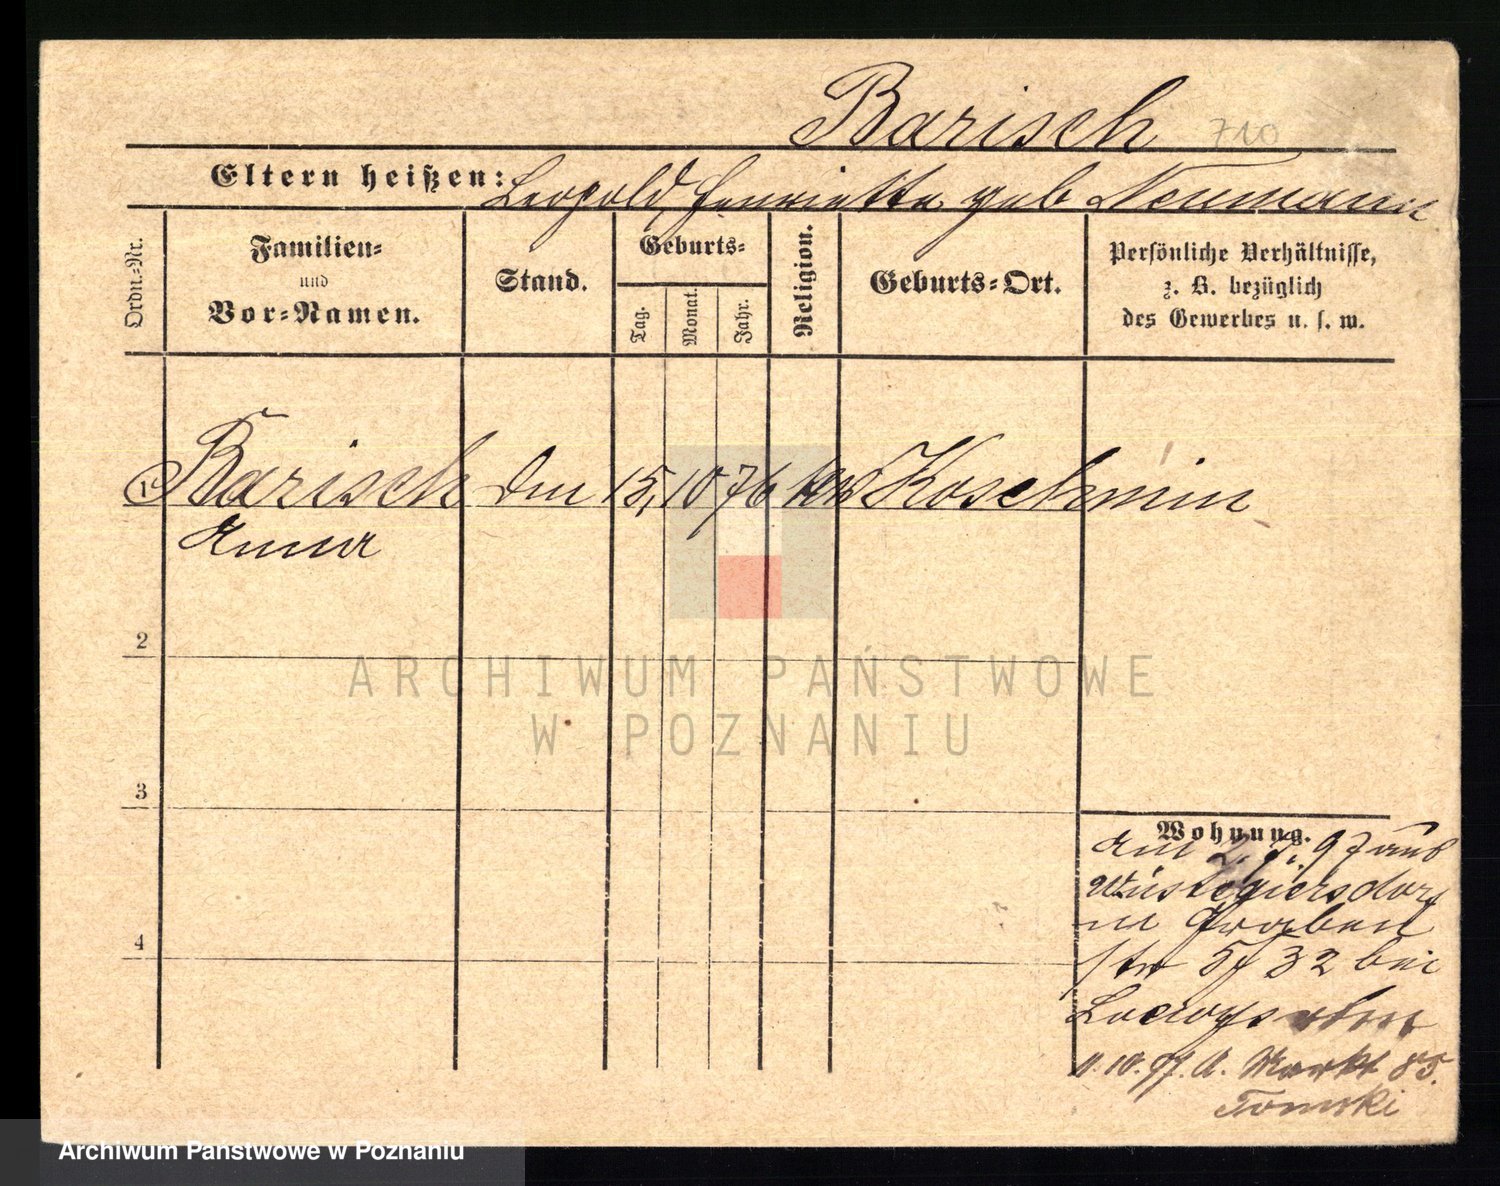 Barisch 710
Eltern heißen: Leopold, Henriette geb Neumann
Ordn.=Nr.
Familien=
und
Vor=Namen.
Stand.
Geburts=
Tag.
Monat.
Jahr.
Religion.
Geburts=Ort.
Persönliche Verhältnisse,
z. B. bezüglich
des Gewerbes u. s. w.
1 Barisch 15, 10 76 Koschmin
Anna
2
3
4
Wohnung.
am 2. 97 aus
Wüstegiersdorf
Graben
str 32 bei
11.10.97. A. Markt 85.
Tomski
ARCHIWUM PAŃSTWOWE
W POZNANIU
Archiwum Państwowe w Poznaniu